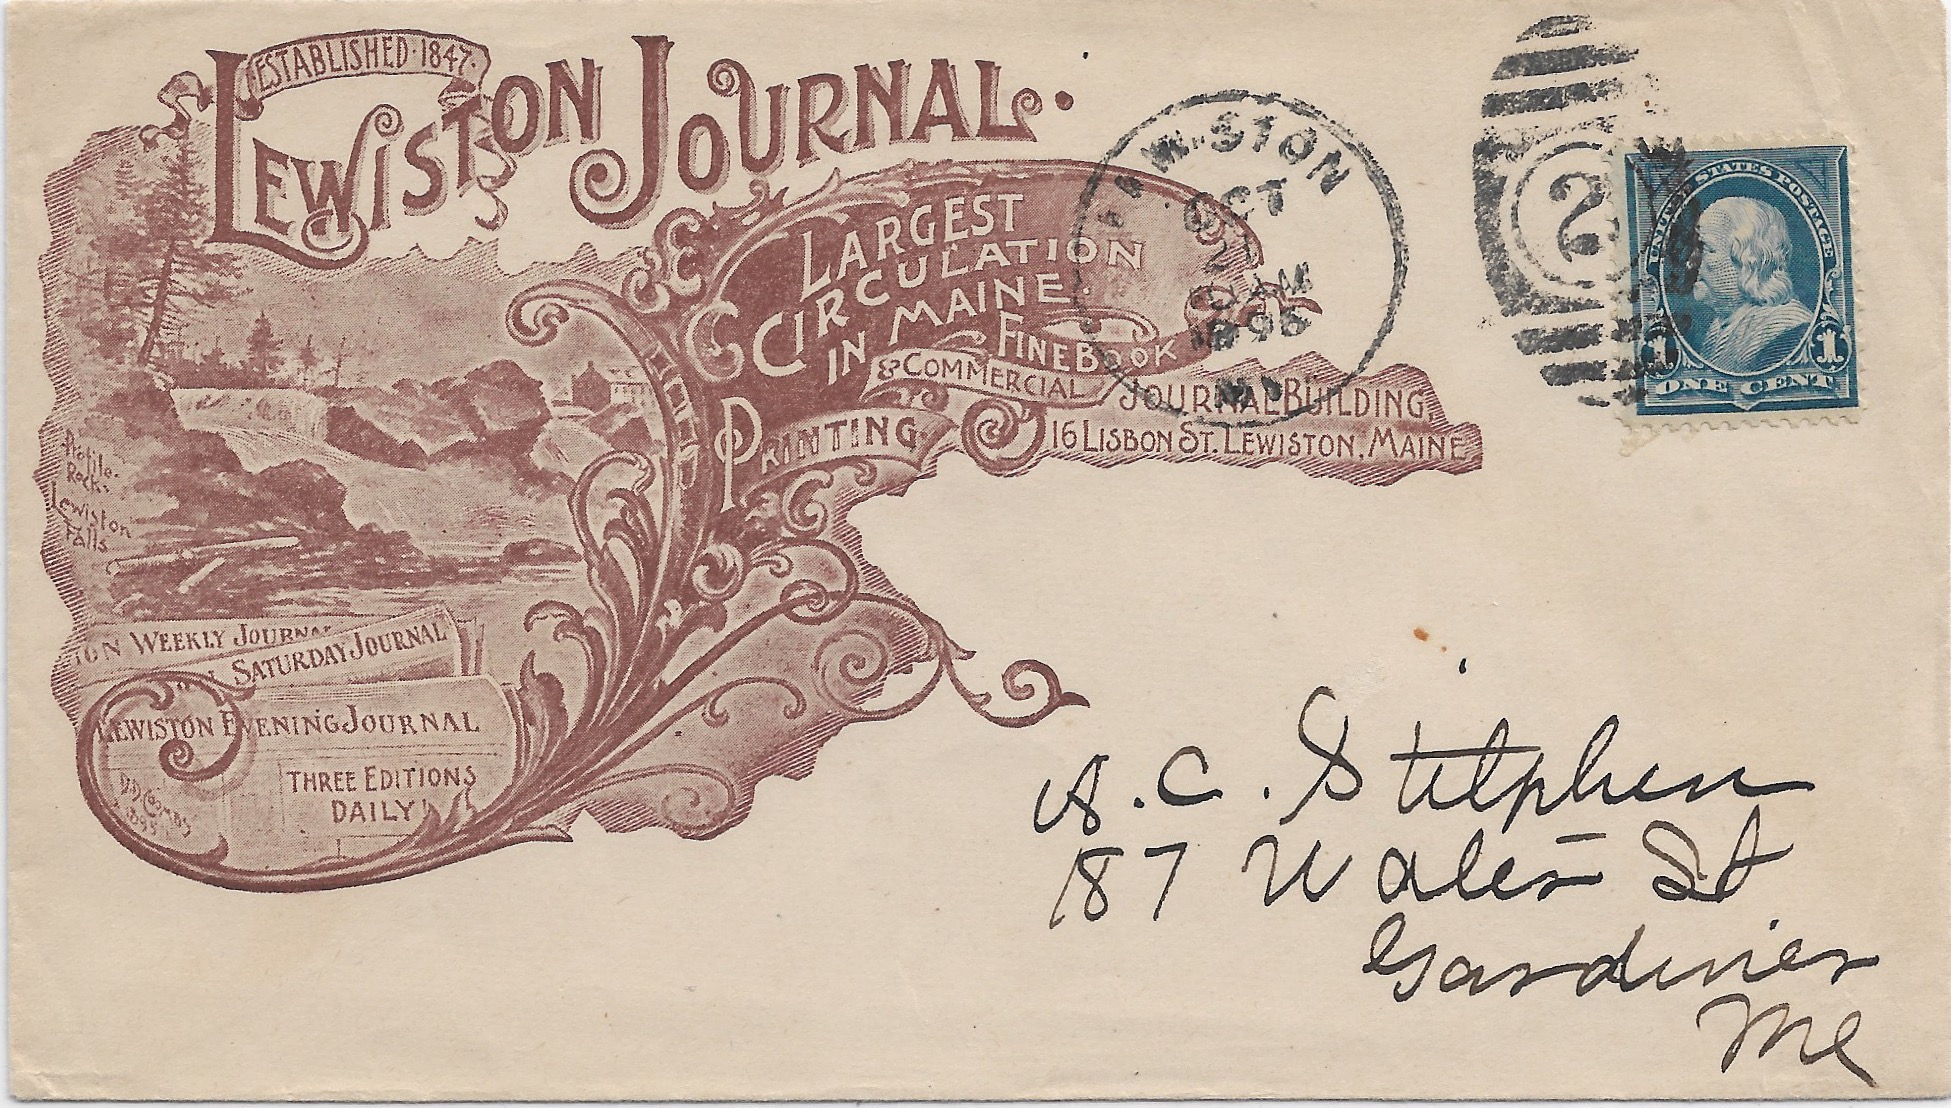 ESTABLISHED · 1847 ·
LEWISTON JOURNAL.
LARGEST
CIRCULATION
IN MAINE.
FINE BOOK
& COMMERCIAL
PRINTING.
JOURNAL BUILDING,
16 LISBON ST. LEWISTON, MAINE
Profile
Rock
Lewiston
Falls
ON WEEKLY JOURNAL
SATURDAY JOURNAL
LEWISTON EVENING JOURNAL
THREE EDITIONS
DAILY!
D.D. COOMBS
1895
LEWISTON
OCT
1895
ME
2
UNITED STATES POSTAGE
1 1
ONE CENT
A. C. Stilphen
187 Water St
Gardiner
Me